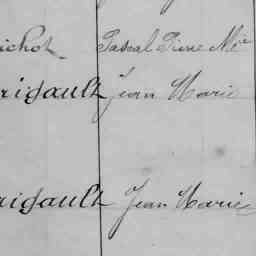 ichot Pascal Pierre Mie
rigault Jean Marie
rigault Jean Marie